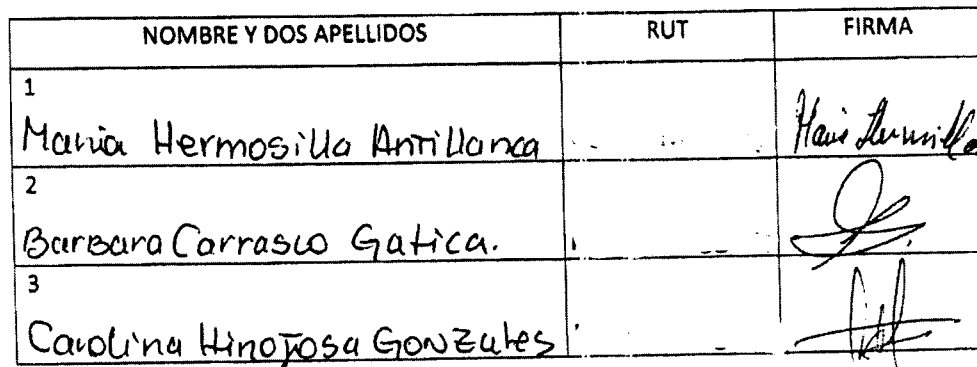 NOMBRE Y DOS APELLIDOS RUT FIRMA
1
Maria Hermosilla Antillanca
2
Barbara Carrasco Gatica.
3
Carolina Hinojosa Gonzales